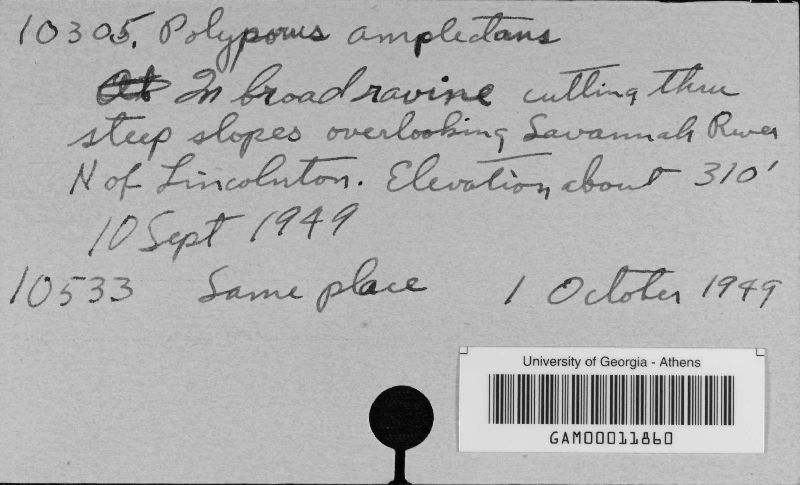 10305. Polyporus amplectans
In broad ravine cutting thru
steep slopes overlooking Savannah River
N of Lincolnton. Elevation about 310'
10 Sept 1949
10533 Same place 1 October 1949
University of Georgia - Athens
GAM00011860